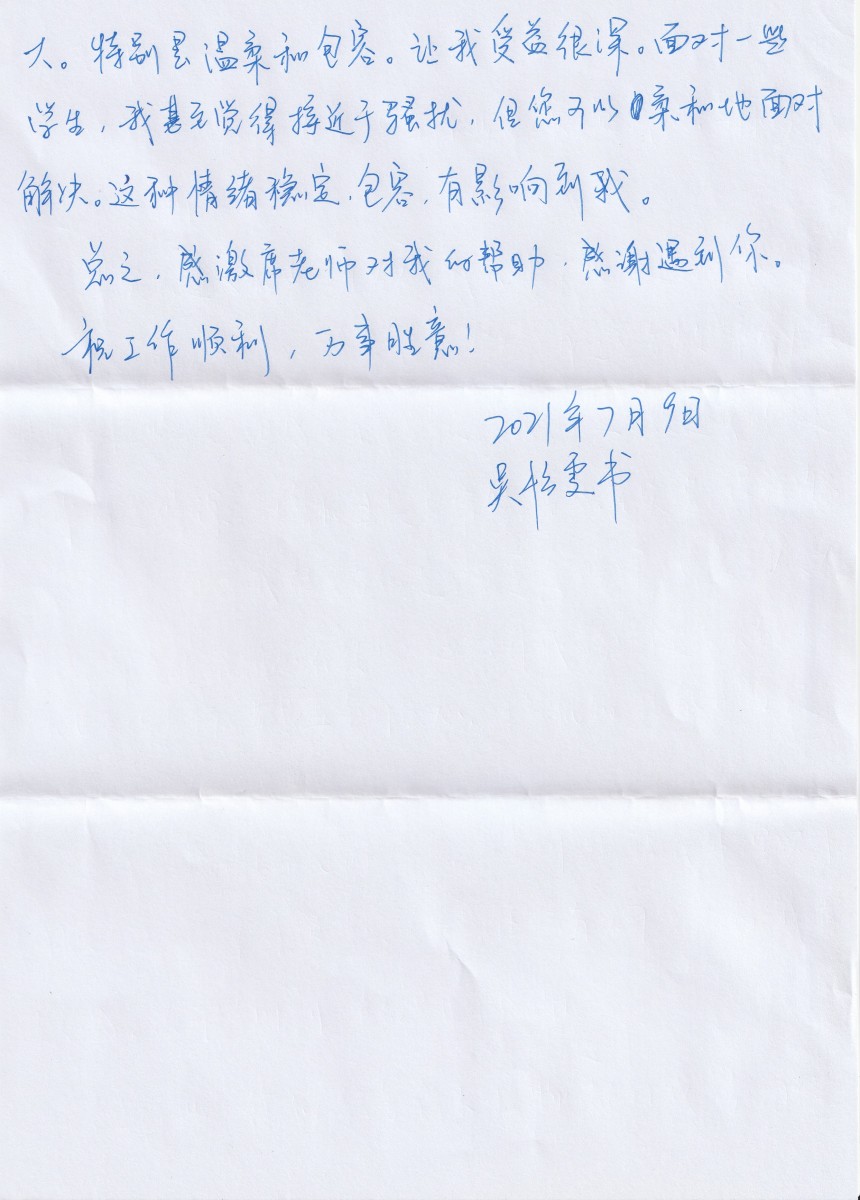 大。特别是温柔和包容。让我受益很深。面对一些
学生，我甚至觉得接近于骚扰，但您可以柔和地面对
解决。这种情绪稳定、包容，有影响到我。
总之，感激席老师对我的帮助，感谢遇到你。
祝工作顺利，万事胜意！
2021年7月9日
吴松雯书